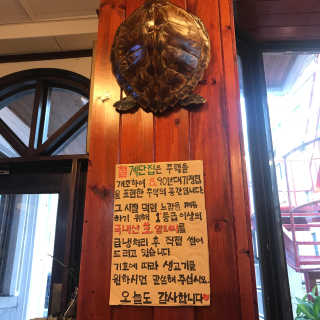 철계단집은 주택을
개조하여 8,90년대가정집
을 표현한 추억의 공간입니다.
그 시절 대면 느낌을 제공
하기 위해 1등급 이상의
국내산 생 암퇘지를
급냉처리 후 직접 썰어
드리고 있습니다.
기호에 따라 생고기를
원하시면 말씀해 주십시오.
오늘도 감사합니다